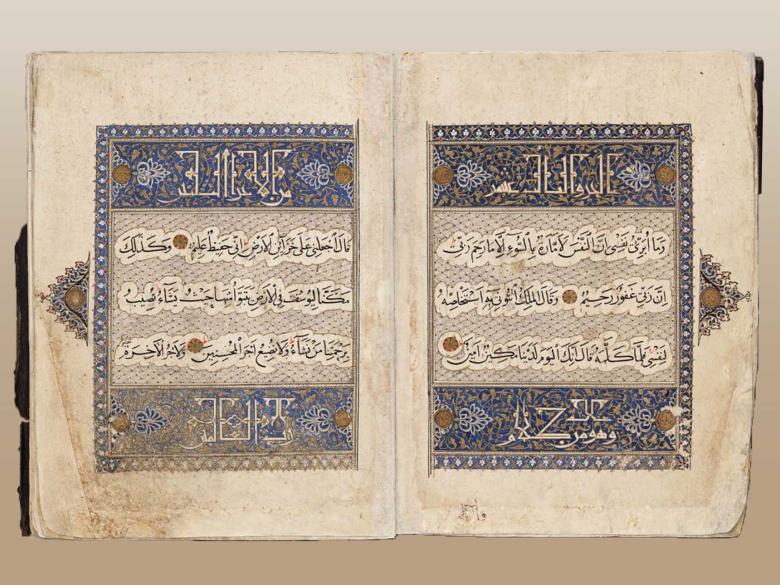 الجزو الثالث عشر
وَمَا أُبَرِّئُ نَفْسِى إِنَّ النَّفْسَ لَأَمَّارَةٌ بِالسُّوءِ إِلَّا مَا رَحِمَ رَبِّى
إِنَّ رَبِّى غَفُورٌ رَحِيمٌ وَقَالَ الْمَلِكُ ائْتُونِى بِهِ أَسْتَخْلِصْهُ
لِنَفْسِى فَلَمَّا كَلَّمَهُ قَالَ إِنَّكَ الْيَوْمَ لَدَيْنَا مَكِينٌ أَمِينٌ
وهو من كلام
من الاجزاء الثلثين
قَالَ اجْعَلْنِى عَلَى خَزَائِنِ الْأَرْضِ إِنِّى حَفِيظٌ عَلِيمٌ وَكَذَلِكَ
مَكَّنَّا لِيُوسُفَ فِى الْأَرْضِ يَتَبَوَّأُ مِنْهَا حَيْثُ يَشَاءُ نُصِيبُ
بِرَحْمَتِنَا مَنْ نَشَاءُ وَلَا نُضِيعُ أَجْرَ الْمُحْسِنِينَ وَلَأَجْرُ الْآخِرَةِ خَيْرٌ
رب العالمين